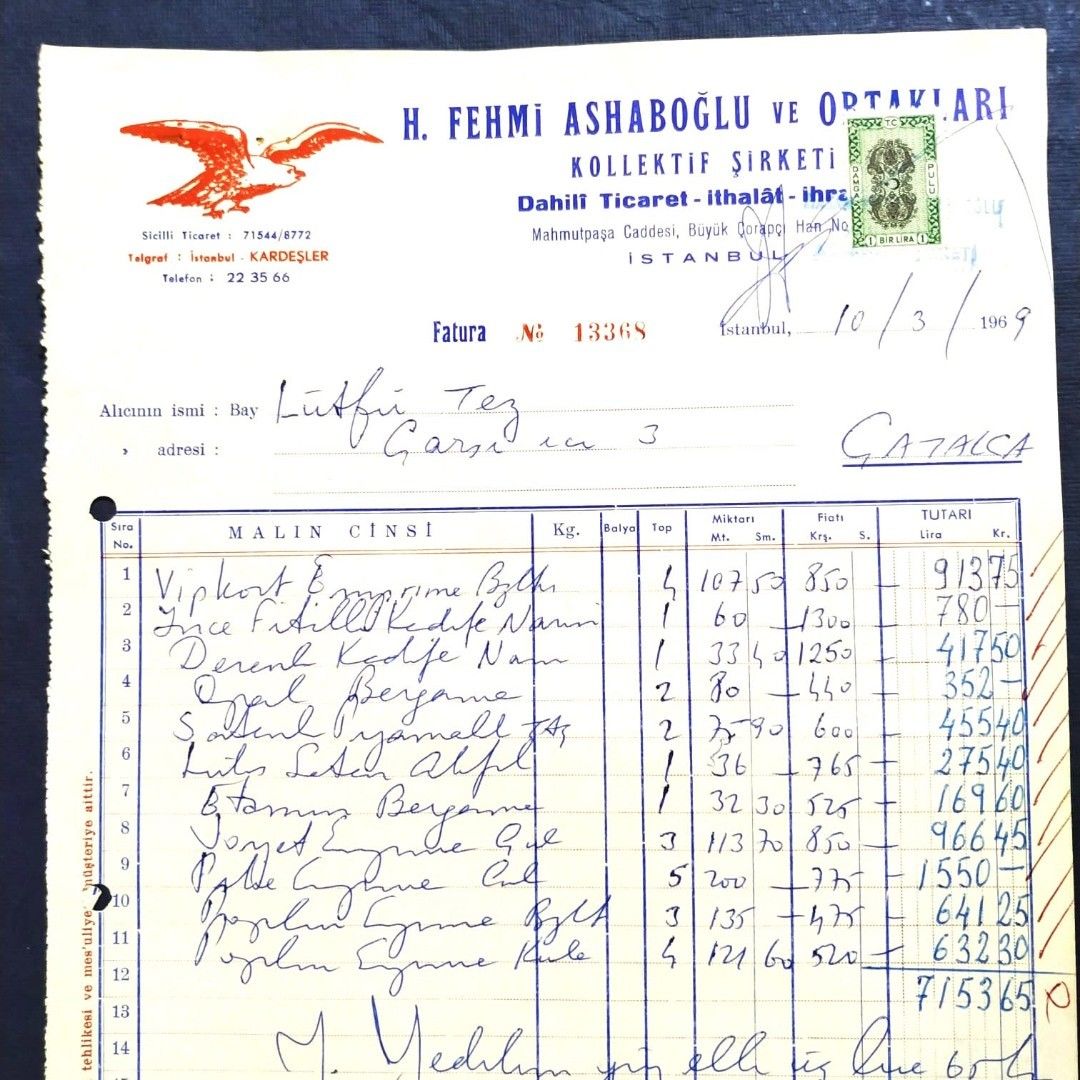 H. FEHMİ ASHABOĞLU VE ORTAKLARI
KOLLEKTİF ŞİRKETİ
Dahilî Ticaret - ithalât - ihra
Mahmutpaşa Caddesi, Büyük Çorapçı Han No
İSTANBUL
TC
DAMGA PULU
1 BİR LİRA 1
Sicilli Ticaret : 71544/8772
Telgraf : İstanbul - KARDEŞLER
Telefon : 22 35 66
Fatura № 13368
İstanbul, 10 / 3 / 1969
Alıcının ismi : Bay Lütfü Tez
» adresi : Çarşı içi 3 ÇATALCA
Sıra No. MALIN CİNSİ Kg. Balya Top Miktarı Mt. Sm. Fiatı Krş. S. TUTARI Lira Kr.
1 Vipkort Emprime 4 107 50 850 — 913 75
2 İnce Fitilli Kadife Narin 1 60 — 1300 — 780 —
3 Desenli Kadife 1 33 40 1250 — 417 50
4 Opal Bergama 2 80 — 440 — 352 —
5 2 75 90 600 — 455 40
6 Saten 1 36 — 765 — 275 40
7 Etamin Bergama 1 32 30 525 — 169 60
8 3 113 70 850 — 966 45
9 5 200 — 775 — 1550 —
10 3 135 — 475 — 641 25
11 4 121 60 520 — 632 30
12 7153 65
13
14 Y. Yedibin yüz elli üç lira 65
tehlikesi ve mes'uliyeti müşteriye aittir.